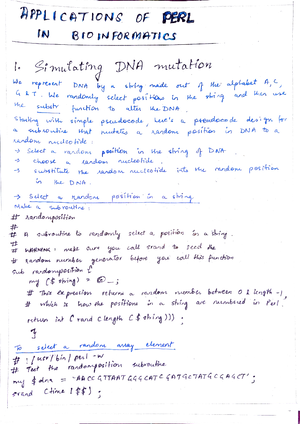 APPLICATIONS OF PERL
IN BIOINFORMATICS
1. Simulating DNA mutation
We represent DNA by a string made out of the alphabet A, C,
G & T. We randomly select positions in the string and then use
the substr function to alter the DNA.
Starting with simple pseudocode, here's a pseudocode design for
a subroutine that mutates a random position in DNA to a
random nucleotide:
→ Select a random position in the string of DNA.
→ choose a random nucleotide.
→ substitute the random nucleotide into the random position
in the DNA.
→ Select a random position in a string
Make a subroutine:
# randomposition
#
# A subroutine to randomly select a position in a string.
#
# WARNING: make sure you call srand to seed the
# random number generator before you call this function
Sub randomposition {
my ($ string) = @_;
# This expression returns a random number between 0 & length-1,
# which is how the positions in a string are numbered in Perl.
return int (rand (length ($ string)));
}
To select a random array element
# ! /usr/bin/perl -w
# Test the randomposition subroutine
my $ dna = 'AACCGTTAATGGGCATCGATGCTATGCGAGCT';
srand (time | $$);